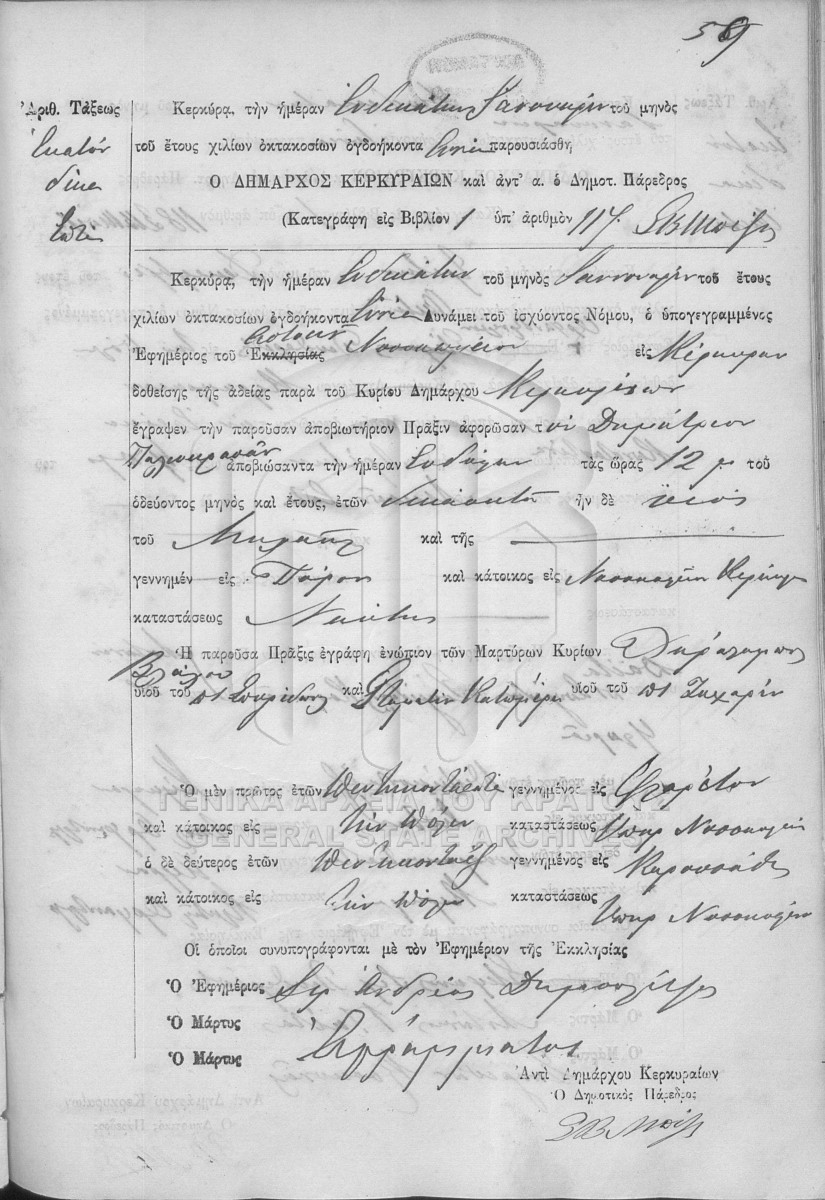 59
Ἀριθ. Τάξεως
Ἑκατόν
δέκα
ἑπτά
Κερκύρα, τὴν ἡμέραν Ἑνδεκάτην Ἰαννουαρίου τοῦ μηνὸς
τοῦ ἔτους χιλίων ὀκτακοσίων ὀγδοήκοντα ἐννέα παρουσιάσθη
Ὁ ΔΗΜΑΡΧΟΣ ΚΕΡΚΥΡΑΙΩΝ καὶ ἀντ' α. ὁ Δημοτ. Πάρεδρος
(Κατεγράφη εἰς Βιβλίον 1 ὑπ' ἀριθμὸν 117
Κερκύρα, τὴν ἡμέραν Ἑνδεκάτην τοῦ μηνὸς Ἰαννουαρίου τοῦ ἔτους
χιλίων ὀκτακοσίων ὀγδοήκοντα ἐννέα Δυνάμει τοῦ ἰσχύοντος Νόμου, ὁ ὑπογεγραμμένος
Ἐφημέριος τοῦ Ἐκκλησίας Νοσοκομείου εἰς Κέρκυραν
δοθείσης τῆς ἀδείας παρὰ τοῦ Κυρίου Δημάρχου Κερκυραίων
ἔγραψεν τὴν παροῦσαν ἀποβιωτήριον Πρᾶξιν ἀφορῶσαν τὸν Δημήτριον
ἀποβιώσαντα τὴν ἡμέραν ἑνδεκάτην τὰς ὥρας 12 μ τοῦ
ὁδεύοντος μηνὸς καὶ ἔτους, ἐτῶν δεκαοκτώ ἦν δὲ υἱός
τοῦ Μιχαήλ καὶ τῆς
γεννημέν εἰς Πόρον καὶ κάτοικος εἰς Νοσοκομεῖον Κερκύρας
καταστάσεως Ναύτης
Ἡ παροῦσα Πρᾶξις ἐγράφη ἐνώπιον τῶν Μαρτύρων Κυρίων Χαράλαμπος
Βλάχου
υἱοῦ τοῦ πτ Σπυρίδωνος καὶ Σταματίου υἱοῦ τοῦ πτ Ζαχαρία
Ὁ μὲν πρῶτος ἐτῶν πεντηκονταέξι γεννημένος εἰς
καὶ κάτοικος εἰς τὴν πόλιν καταστάσεως Ὑπηρ Νοσοκομείου
ὁ δὲ δεύτερος ἐτῶν πεντηκονταέξ γεννημένος εἰς Καρουσάδες
καὶ κάτοικος εἰς τὴν πόλιν καταστάσεως Ὑπηρ Νοσοκομείου
Οἱ ὁποῖοι συνυπογράφονται μὲ τὸν Ἐφημέριον τῆς Ἐκκλησίας
Ὁ Ἐφημέριος Ἱερ Ἀνδρέας
Ὁ Μάρτυς Ἀγράμματος
Ὁ Μάρτυς
Ἀντὶ Δημάρχου Κερκυραίων
Ὁ Δημοτικὸς Πάρεδρος
ΓΕΝΙΚΑ ΑΡΧΕΙΑ ΤΟΥ ΚΡΑΤΟΥΣ
GENERAL STATE ARCHIVES